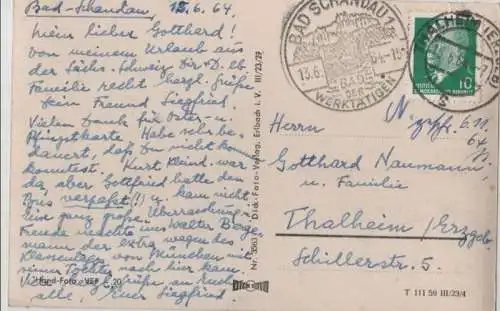 Bad-Schandau, 13.6.64
Mein lieber Gotthard!
Von meinem Urlaub aus
der Sächs. Schweiz Dir u. lb.
Familie recht herzl. Grüße
Dein Freund Siegfried.
Vielen Dank für Oster- u.
Pfingstkarte. Habe sehr be-
dauert, daß Du nicht kommen
konntest. Kurt Kleind. war
da, aber Gottfried hatte den
Bus verpaßt (!) u. kam nicht
Eine ganz große Überraschung u.
Freude machte uns Walter Berger
mann der extra wegen des
Klassentags von München mit
seiner Tochter nach hier kam.
Viele Grüße an Euch
alle, Euer Siegfried
Hand-Foto VEB E 20
Nr. 3563 Dick-Foto-Verlag, Erlbach i. V. III/23/29
BAD SCHANDAU 1
13.6.64-18
BAD DER
WERKTÄTIGEN
THALHEIM (ERZGEB)
10
6.11.
64
Herrn
Gotthard Naumann
u. Familie
Thalheim / Erzgeb.
Schillerstr. 5.
T 111 59 III/23/4